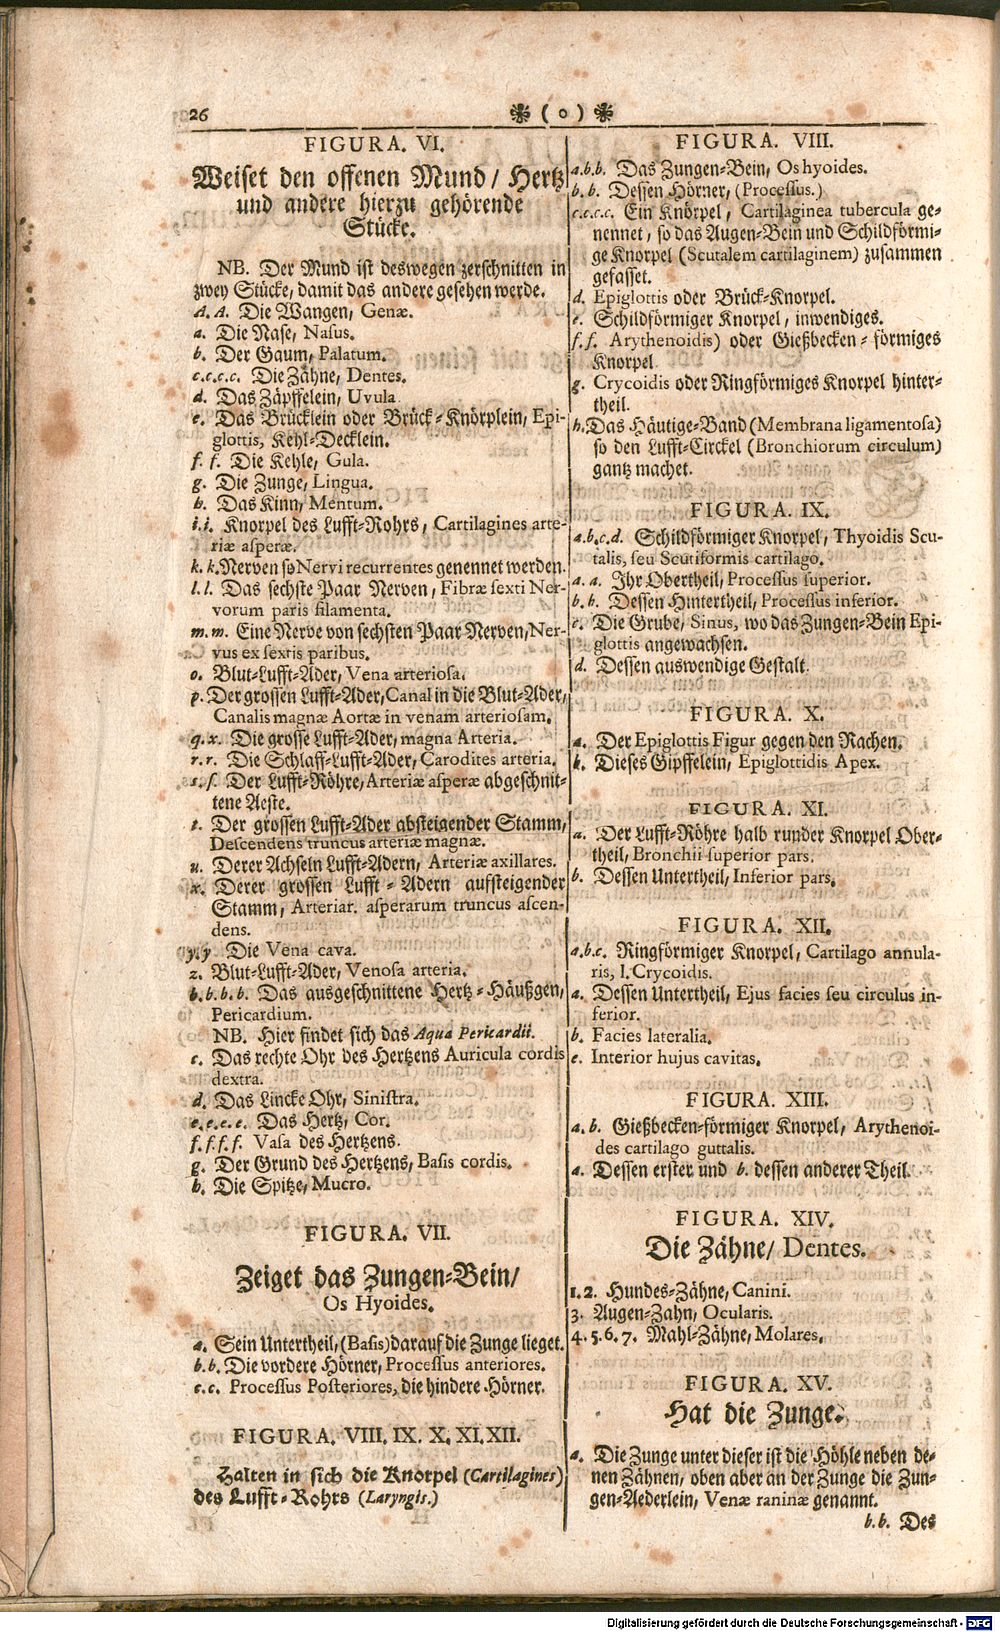 26
( o )
FIGURA. VI.
Weiset den offenen Mund/ Hertz
und andere hierzu gehörende
Stücke.
NB. Der Mund ist deswegen zerschnitten in
zwey Stücke, damit das andere gesehen werde.
A. A. Die Wangen, Genæ.
a. Die Nase, Nasus.
b. Der Gaum, Palatum.
c.c.c.c. Die Zähne, Dentes.
d. Das Zäpffelein, Uvula
e. Das Brücklein oder Brück-Knörplein, Epi-
glottis, Kehl-Decklein.
f. f. Die Kehle, Gula.
g. Die Zunge, Lingua.
h. Das Kinn, Mentum.
i.i. Knorpel des Lufft-Rohrs, Cartilagines arte-
riæ asperæ.
k. k. Nerven so Nervi recurrentes genennet werden.
l. l. Das sechste Paar Nerven, Fibræ sexti Ner-
vorum paris filamenta.
m. m. Eine Nerve von sechsten Paar Nerven, Ner-
vus ex sextis paribus.
o. Blut-Lufft-Ader, Vena arteriosa.
p. Der grossen Lufft-Ader, Canal in die Blut-Ader,
Canalis magnæ Aortæ in venam arteriosam.
q. x. Die grosse Lufft-Ader, magna Arteria.
r. r. Die Schlaff-Lufft-Ader, Carodites arteria.
s. s. Der Lufft-Röhre, Arteriæ asperæ abgeschnit-
tene Aeste.
t. Der grossen Lufft-Ader absteigender Stamm,
Descendens truncus arteriæ magnæ.
u. Derer Achseln Lufft-Adern, Arteriæ axillares.
x. Derer grossen Lufft-Adern aufsteigender
Stamm, Arteriar. asperarum truncus ascen-
dens.
y. y Die Vena cava.
z. Blut-Lufft-Ader, Venosa arteria.
b. b. b. b. Das ausgeschnittene Hertz-Häußgen,
Pericardium.
NB. Hier findet sich das Aqua Pericardii.
c. Das rechte Ohr des Hertzens Auricula cordis
dextra.
d. Das Lincke Ohr, Sinistra.
e. e. e. e. Das Hertz, Cor.
f. f. f. f. Vasa des Hertzens.
g. Der Grund des Hertzens, Basis cordis.
h. Die Spitze, Mucro.
FIGURA. VII.
Zeiget das Zungen-Bein/
Os Hyoides.
a. Sein Untertheil, (Basis) darauf die Zunge lieget.
b. b. Die vordere Hörner, Processus anteriores.
c. c. Processus Posteriores, die hindere Hörner.
FIGURA. VIII. IX. X. XI. XII.
Halten in sich die Knorpel (Cartilagines)
des Lufft-Rohrs (Laryngis.)
FIGURA. VIII.
a.b.b. Das Zungen-Bein, Os hyoides.
b. b. Dessen Hörner, (Processus.)
c.c.c.c. Ein Knörpel, Cartilaginea tubercula ge-
nennet, so das Augen-Bein und Schildförmi-
ge Knorpel (Scutalem cartilaginem) zusammen
gefasset.
d. Epiglottis oder Brück-Knorpel.
e. Schildförmiger Knorpel, inwendiges.
f. f. Arythenoidis) oder Gießbecken-förmiges
Knorpel
g. Crycoidis oder Ringförmiges Knorpel hinter-
theil.
h. Das Häutige-Band (Membrana ligamentosa)
so den Lufft-Circkel (Bronchiorum circulum)
gantz machet.
FIGURA. IX.
a.b.c.d. Schildförmiger Knorpel, Thyoidis Scu-
talis, seu Scutiformis cartilago.
a. a. Ihr Obertheil, Processus superior.
b. b. Dessen Hintertheil, Processus inferior.
c. Die Grube, Sinus, wo das Zungen-Bein Epi-
glottis angewachsen.
d. Dessen auswendige Gestalt.
FIGURA. X.
a. Der Epiglottis Figur gegen den Rachen.
k. Dieses Gipffelein, Epiglottidis Apex.
FIGURA. XI.
a. Der Lufft-Röhre halb runder Knorpel Ober-
theil, Bronchii superior pars.
b. Dessen Untertheil, Inferior pars.
FIGURA. XII.
a.b.c. Ringförmiger Knorpel, Cartilago annula-
ris, l. Crycoidis.
a. Dessen Untertheil, Ejus facies seu circulus in-
ferior.
b. Facies lateralia.
c. Interior hujus cavitas.
FIGURA. XIII.
a. b. Gießbecken-förmiger Knorpel, Arythenoi-
des cartilago guttalis.
a. Dessen erster und b. dessen anderer Theil.
FIGURA. XIV.
Die Zähne/ Dentes.
1. 2. Hundes-Zähne, Canini.
3. Augen-Zahn, Ocularis.
4. 5. 6, 7. Mahl-Zähne, Molares.
FIGURA. XV.
Hat die Zunge.
a. Die Zunge unter dieser ist die Höhle neben de-
nen Zähnen, oben aber an der Zunge die Zun-
gen-Aederlein, Venæ raninæ genannt.
b. b. Des
Digitalisierung gefördert durch die Deutsche Forschungsgemeinschaft - DFG